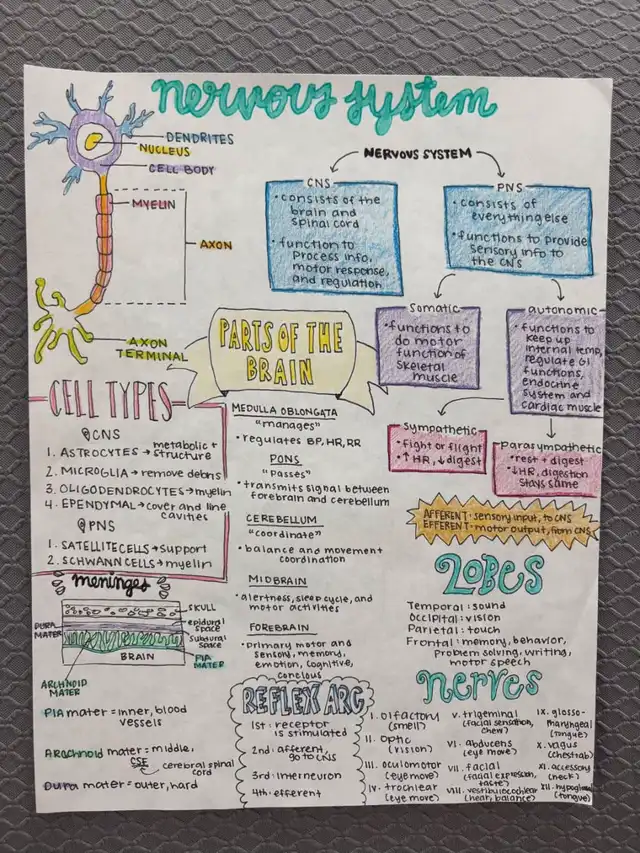 nervous system
DENDRITES
NUCLEUS
CELL BODY
MYELIN
AXON
AXON
TERMINAL
NERVOUS SYSTEM
CNS
• consists of the
brain and
spinal cord
• function to
process info,
motor response,
and regulation
PNS
• consists of
everything else
• functions to provide
sensory info to
the CNS
Somatic
• functions to
do motor
function of
skeletal
muscle
autonomic
• functions to
keep up
internal temp,
regulate GI
functions,
endocrine
system and
cardiac muscle
Sympathetic
• fight or flight
↑ HR, ↓ digest
Parasympathetic
• rest + digest
• ↓HR, digestion
stays same
AFFERENT: sensory input, to CNS
EFFERENT: motor output, from CNS
PARTS OF THE
BRAIN
MEDULLA OBLONGATA
"manages"
• regulates BP, HR, RR
PONS
"passes"
• transmits signal between
forebrain and cerebellum
CEREBELLUM
"coordinate"
• balance and movement
coordination
MIDBRAIN
• alertness, sleep cycle, and
motor activities
FOREBRAIN
• primary motor and
sensory, memory,
emotion, cognitive,
concious
CELL TYPES
@CNS
1. ASTROCYTES → metabolic +
structure
2. MICROGLIA → remove debris
3. OLIGODENDROCYTES → myelin
4. EPENDYMAL → cover and line
cavities
@PNS
1. SATELLITE CELLS → support
2. SCHWANN CELLS → myelin
meninges
SKULL
epidural
space
subdural
space
DURA
MATER
PIA
MATER
BRAIN
ARCHNOID
MATER
PIA mater = inner, blood
vessels
Arachnoid mater = middle,
CSF
cerebral spinal
cord
Dura mater = outer, hard
REFLEX ARC
1st: receptor
is stimulated
2nd: afferent,
go to CNS
3rd: interneuron
4th: efferent
LOBES
Temporal: sound
Occipital: vision
Parietal: touch
Frontal: memory, behavior,
problem solving, writing,
motor speech
nerves
I. olfactory
(smell)
II. optic
(vision)
III. oculomotor
(eye move)
IV. trochlear
(eye move)
V. trigeminal
(facial sensation,
chew)
VI. abducens
(eye move)
VII. facial
(facial expression,
taste)
VIII. vestibulocochlear
(hear, balance)
IX. glosso-
pharyngeal
(tongue)
X. vagus
XI. accessory
(neck)
XII. hypoglossal
(tongue)